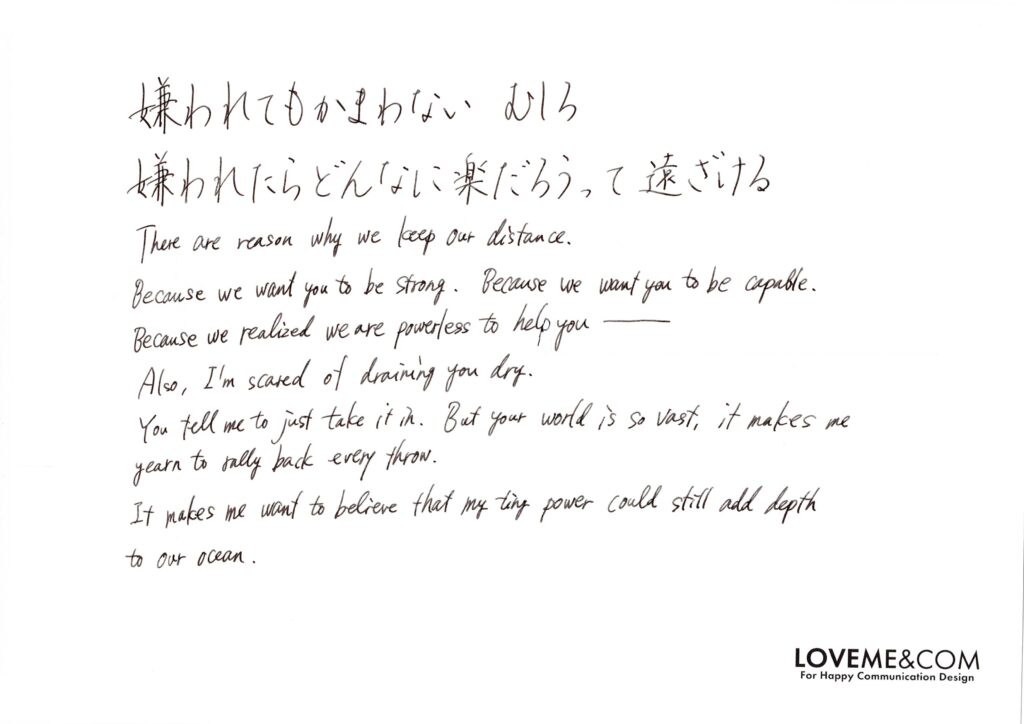 嫌われてもかまわない むしろ
嫌われたらどんなに楽だろうって 遠ざける
There are reason why we keep our distance.
Because we want you to be strong. Because we want you to be capable.
Because we realized we are powerless to help you ——
Also, I'm scared of draining you dry.
You tell me to just take it in. But your world is so vast, it makes me
yearn to rally back every throw.
It makes me want to believe that my tiny power could still add depth
to our ocean.
LOVEME&COM
For Happy Communication Design